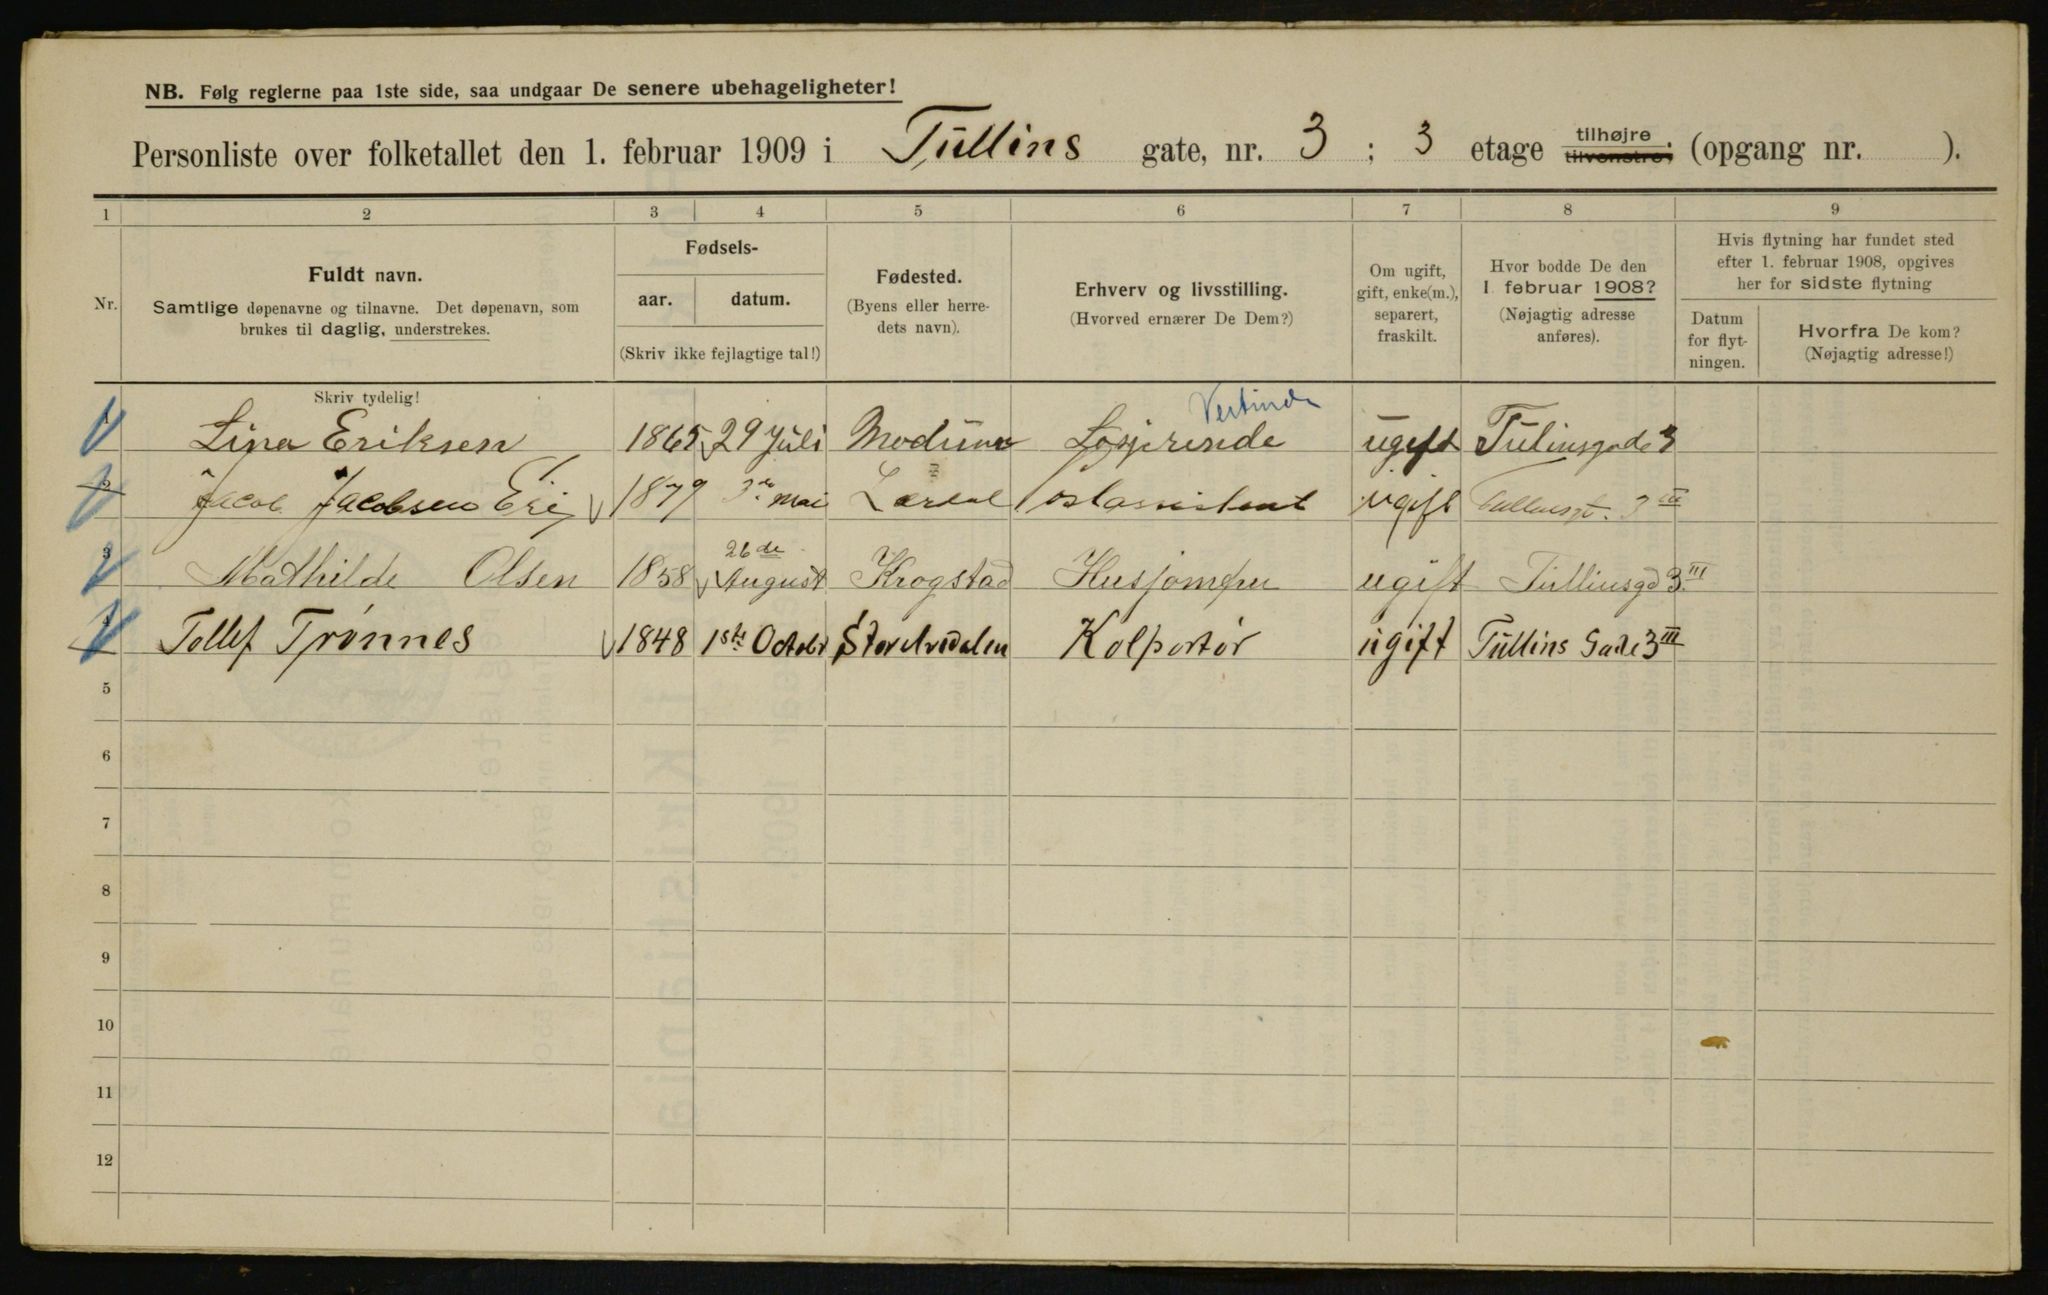 NB. Følg reglerne paa 1ste side, saa undgaar De senere ubehageligheter!
Personliste over folketallet den 1. februar 1909 i Tullins gate, nr. 3 ; 3 etage tilhøjre tilvenstre; (opgang nr. ).
1 2 3 4 5 6 7 8 9
Nr.
Fuldt navn.
Samtlige døpenavne og tilnavne. Det døpenavn, som
brukes til daglig, understrekes.
Fødsels-
aar. datum.
(Skriv ikke fejlagtige tal!)
Fødested.
(Byens eller herre-
dets navn).
Erhverv og livsstilling.
(Hvorved ernærer De Dem?)
Om ugift,
gift, enke(m.),
separert,
fraskilt.
Hvor bodde De den
1. februar 1908?
(Nøjagtig adresse
anføres).
Hvis flytning har fundet sted
efter 1. februar 1908, opgives
her for sidste flytning
Datum
for flyt-
ningen.
Hvorfra De kom?
(Nøjagtig adresse!)
Skriv tydelig!
Lina Eriksen 1865 29 Juli Modum Losjerende ugift Tulinsgade 3
2 Jacob Jacobsen Eri 1879 3 mai Lærdal ugift Tullinsgt. 3 III
3 Mathilde Olsen 1858 26de August Krogstad Husjomfru ugift Tullinsgd 3 III
4 Tollef Trønnes 1848 1ste Octobr Storelvdalen Kolportør ugift Tullins Gade 3 III
5
6
7
8
9
10
11
12